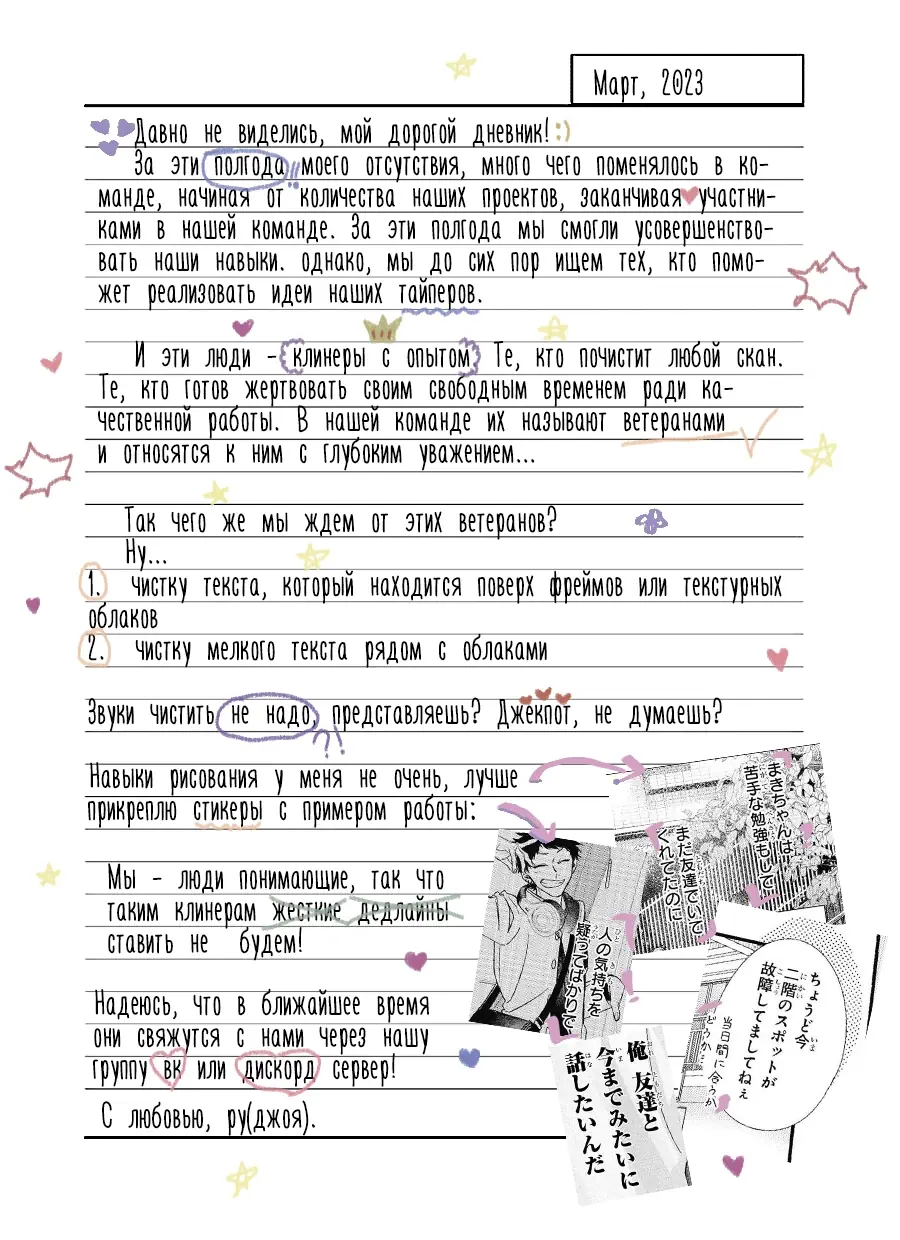 Март, 2023
Давно не виделись, мой дорогой дневник! :)
За эти полгода моего отсутствия, много чего поменялось в ко-
манде, начиная от количества наших проектов, заканчивая участни-
ками в нашей команде. За эти полгода мы смогли усовершенство-
вать наши навыки. однако, мы до сих пор ищем тех, кто помо-
жет реализовать идеи наших тайперов.
И эти люди - клинеры с опытом. Те, кто почистит любой скан.
Те, кто готов жертвовать своим свободным временем ради ка-
чественной работы. В нашей команде их называют ветеранами
и относятся к ним с глубоким уважением...
Так чего же мы ждем от этих ветеранов?
Ну...
1. чистку текста, который находится поверх фреймов или текстурных
облаков
2. чистку мелкого текста рядом с облаками
Звуки чистить не надо, представляешь? Джекпот, не думаешь?
?!
Навыки рисования у меня не очень, лучше
прикреплю стикеры с примером работы:
Мы - люди понимающие, так что
таким клинерам жесткие дедлайны
ставить не будем!
Надеюсь, что в ближайшее время
они свяжутся с нами через нашу
группу вк или дискорд сервер!
С любовью, ру(джоя).
まきちゃんは、
苦手な勉強もして
まだ友達でいて
くれてたのに
人の気持ちを
疑ってばかりで
ちょうど今
二階のスポットが
故障してましてねぇ
当日間に合うか
どうか…
俺 友達と
今までみたいに
話したいんだ